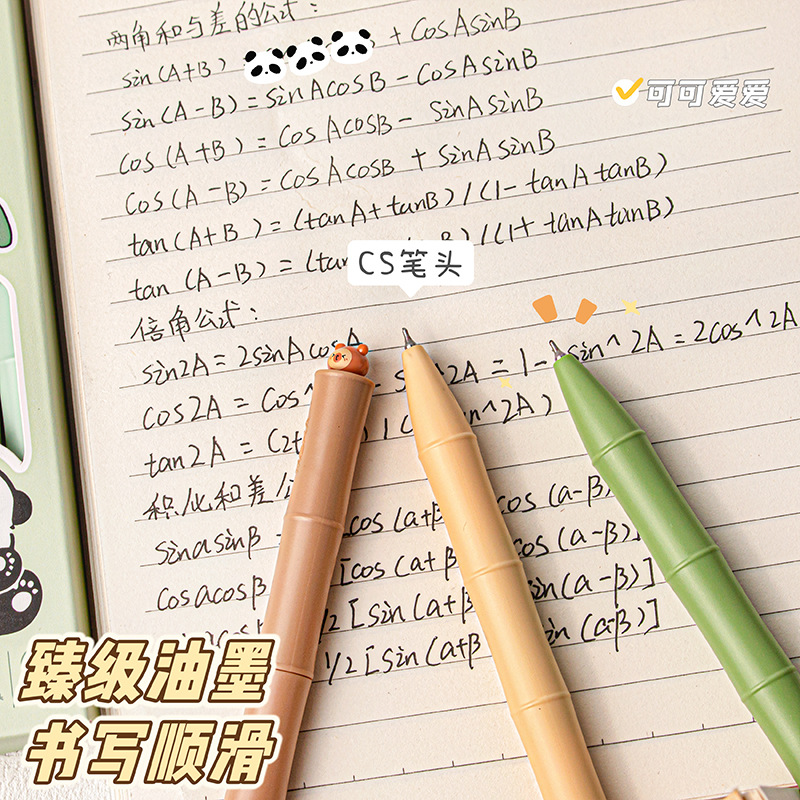 两角和与差的公式:
sin(A+B) + CosAsinB
sin(A-B)=sinAcosB-CosAsinB
可可爱爱
cos(A+B)=CosAcosB-sinAsinB
Cos(A-B)=CosAcosB+sinAsinB
tan(A+B)=(tanA+tanB)/(1-tanAtanB)
tan(A-B)=(tan B)/(1+tanAtanB)
CS笔头
倍角公式:
sin2A=2sinAcosA
Cos2A=Cos^ 2A=1- sin^2A=2cos^2A
tan2A=(2t n^2A)
积化和差公
sinasinβ cos(a+β cos(a-β)
Cosacosβ [cos(a+β cos(a-β)]
/2[sin(a+β sin(a-β)]
1/2[sin(a+β in(a-β)]
臻级油墨
书写顺滑